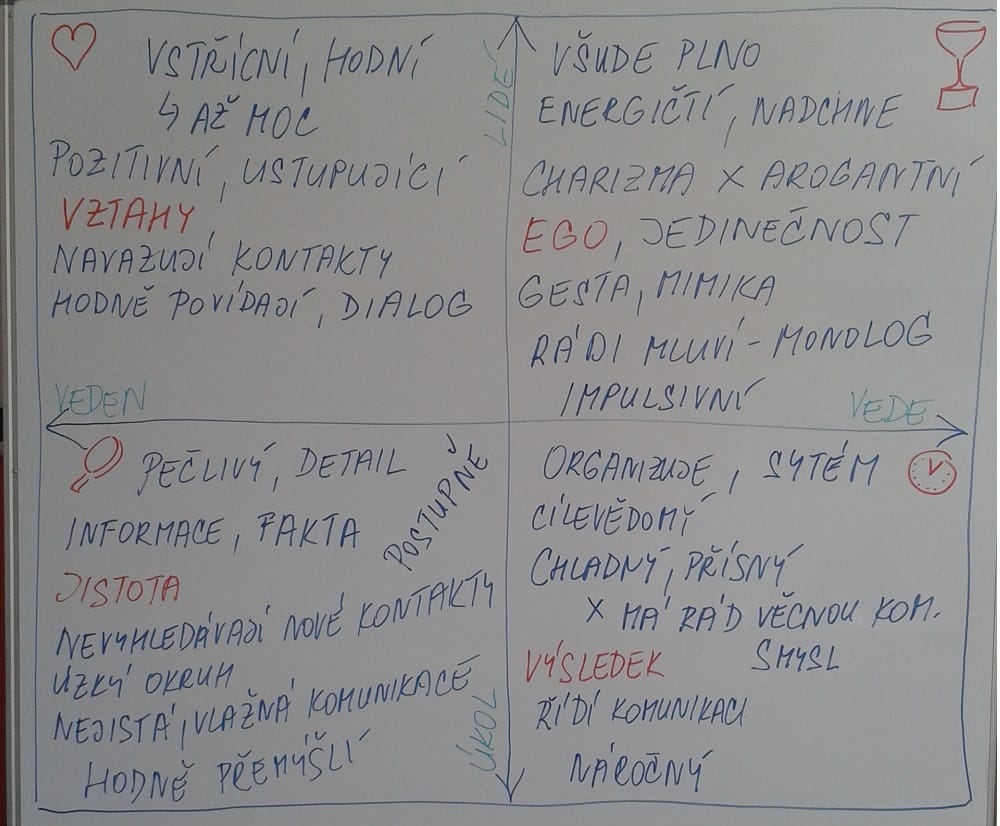 LIDÉ
VSTŘÍCNÍ, HODNÍ
↳ AŽ MOC
POZITIVNÍ, USTUPUJÍCÍ
VZTAHY
NAVAZUJÍ KONTAKTY
HODNĚ POVÍDAJÍ, DIALOG
VŠUDE PLNO
ENERGIČTÍ, NADCHNE
CHARIZMA X AROGANTNÍ
EGO, JEDINEČNOST
GESTA, MIMIKA
RÁDI MLUVÍ - MONOLOG
IMPULSIVNÍ
VEDEN
VEDE
PEČLIVÝ, DETAIL
INFORMACE, FAKTA
POSTUPNĚ
JISTOTA
NEVYHLEDÁVAJÍ NOVÉ KONTAKTY
ÚZKÝ OKRUH
NEJISTÁ, VLAŽNÁ KOMUNIKACE
HODNĚ PŘEMÝŠLÍ
ORGANIZUJE, SYTÉM
CÍLEVĚDOMÝ
CHLADNÝ, PŘÍSNÝ
X MÁ RÁD VĚCNOU KOM.
VÝSLEDEK SMYSL
ŘÍDÍ KOMUNIKACI
NÁROČNÝ
ÚKOL